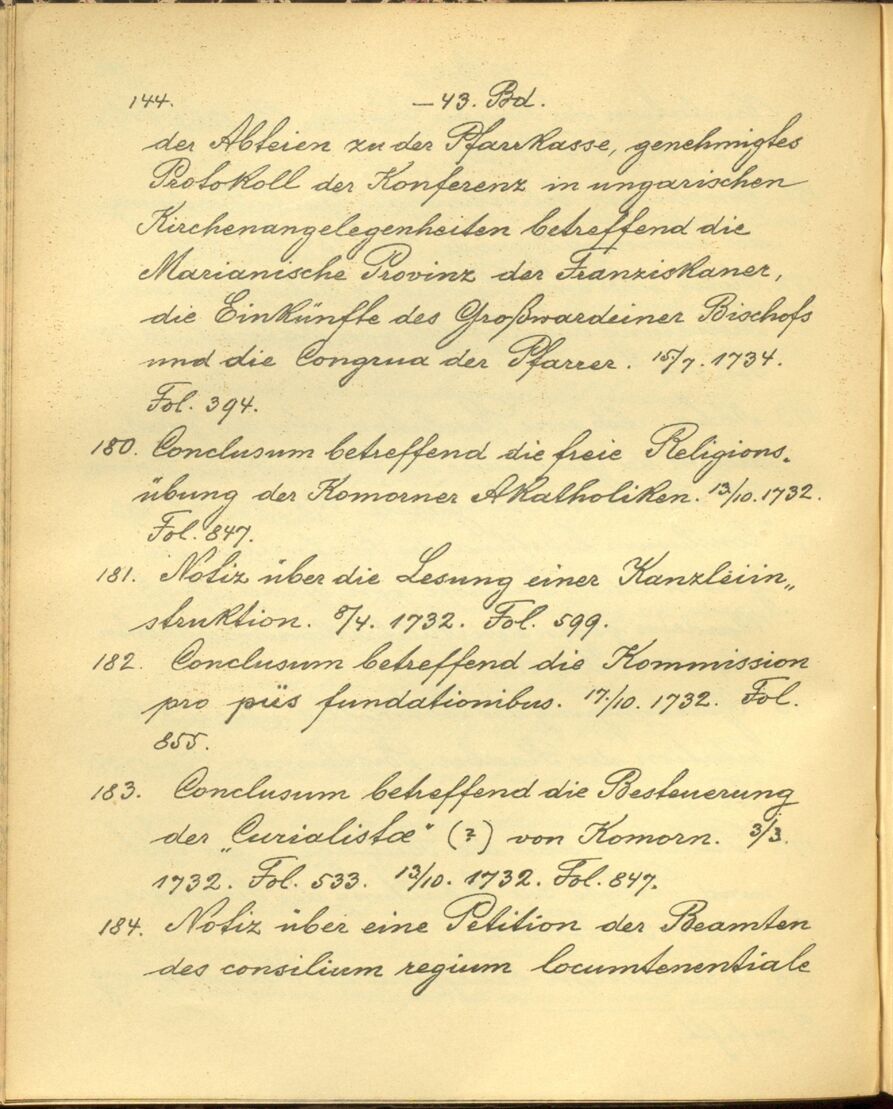 144. — 43. Bd.
der Abteien zu der Pfarrkasse, genehmigtes
Protokoll der Konferenz in ungarischen
Kirchenangelegenheiten betreffend die
Marianische Provinz der Franziskaner,
die Einkünfte des Großwardeiner Bischofs
und die Congrua der Pfarrer. 15/7. 1734.
Fol. 394.
180. Conclusum betreffend die freie Religions-
übung der Komorner Akatholiken. 13/10. 1732.
Fol. 847.
181. Notiz über die Lesung einer Kanzleiin„
struktion. 8/4. 1732. Fol. 599.
182. Conclusum betreffend die Kommission
pro piis fundationibus. 17/10. 1732. Fol.
855.
183. Conclusum betreffend die Besteuerung
der „Curialistæ" (?) von Komorn. 3/3.
1732. Fol. 533. 13/10. 1732. Fol. 847.
184. Notiz über eine Petition der Beamten
des consilium regium locumtenentiale